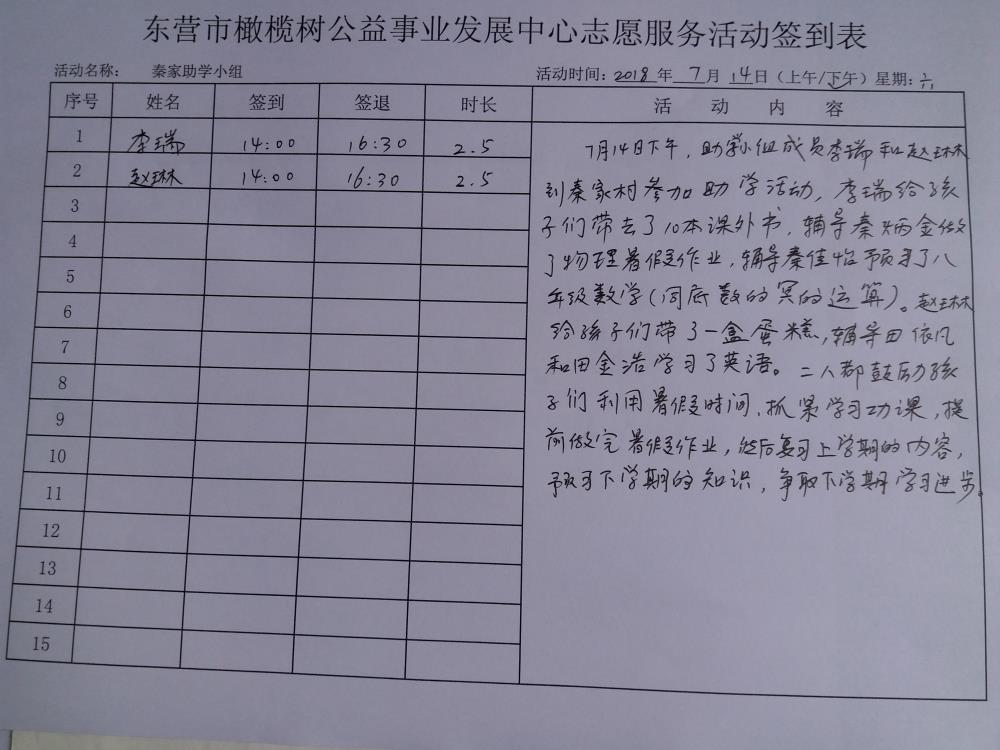 东营市橄榄树公益事业发展中心志愿服务活动签到表
活动名称: 秦家助学小组
活动时间:2018年 7月 14日(上午/下午)星期:六
序号 姓名 签到 签退 时长 活动内容
1 李瑞 14:00 16:30 2.5
2 赵琳琳 14:00 16:30 2.5
3
4
5
6
7
8
9
10
11
12
13
14
15
7月14日下午,助学小组成员李瑞和赵琳琳
到秦家村参加助学活动,李瑞给孩
子们带去了10本课外书,辅导秦炳金做
了物理暑假作业,辅导秦佳怡预习了八
年级数学(同底数的幂的运算)。赵琳琳
给孩子们带了一盒蛋糕,辅导田依凡
和田金浩学习了英语。二人都鼓励孩
子们利用暑假时间,抓紧学习功课,提
前做完暑假作业,然后复习上学期的内容,
预习下学期的知识,争取下学期学习进步。